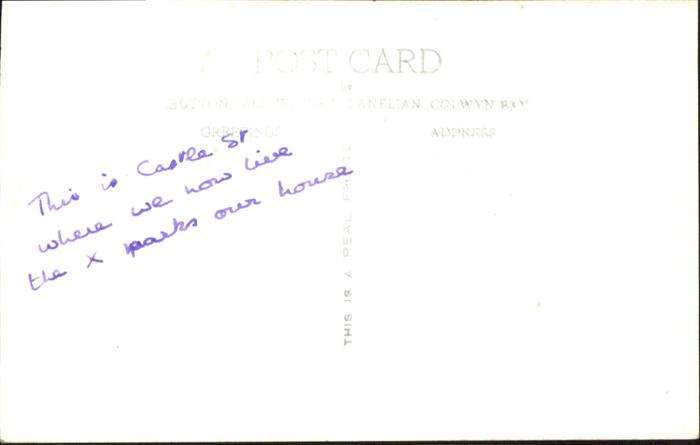 POST CARD
COLWYN BAY
GREETINGS
ADDRESS
This is Castle St
where we now live
the X marks our house
THIS IS A REAL PHOTO